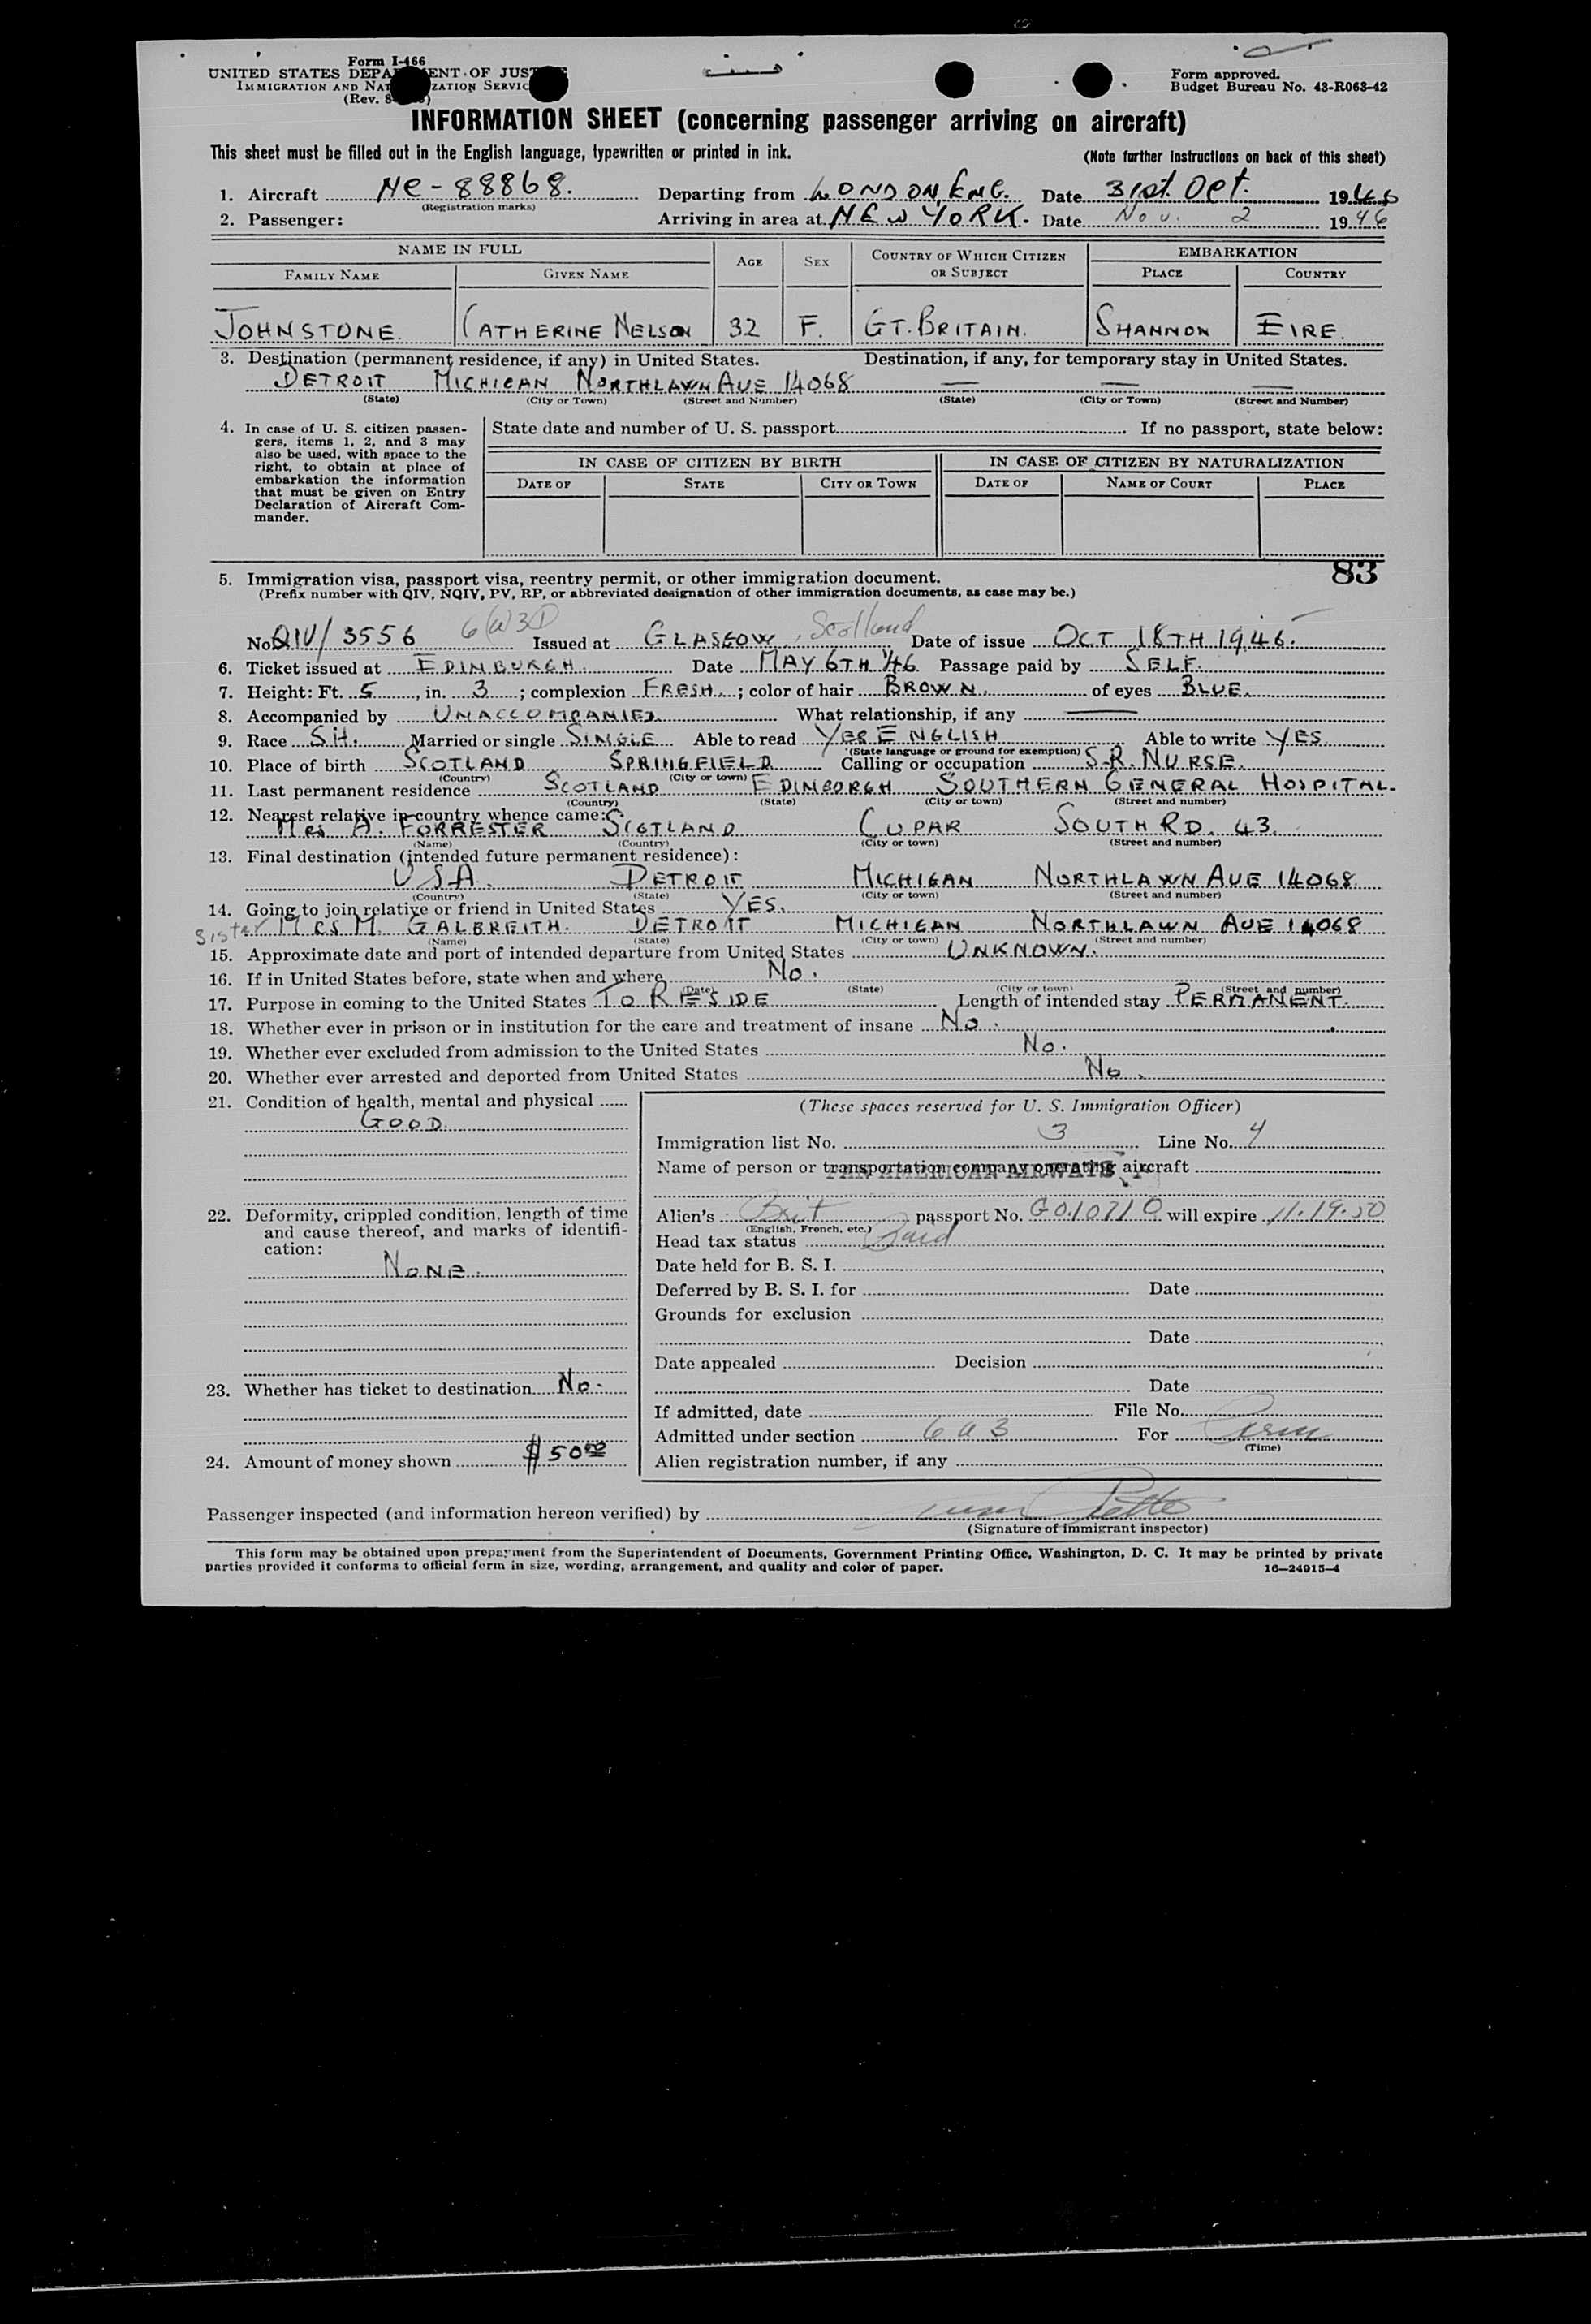 Form I-466
UNITED STATES DEPA ENT OF JUS
IMMIGRATION AND NAT ZATION SERVIC
(Rev. 8
Form approved.
Budget Bureau No. 43-R063-42
INFORMATION SHEET (concerning passenger arriving on aircraft)
This sheet must be filled out in the English language, typewritten or printed in ink. (Note further instructions on back of this sheet)
1. Aircraft NC-88868. Departing from LONDON, ENG. Date 31st. Oct. 1946
(Registration marks)
2. Passenger: Arriving in area at NEW YORK. Date Nov. 2 1946
NAME IN FULL AGE SEX COUNTRY OF WHICH CITIZEN OR SUBJECT EMBARKATION
FAMILY NAME GIVEN NAME PLACE COUNTRY
JOHNSTONE. CATHERINE NELSON 32 F. GT. BRITAIN. SHANNON EIRE.
3. Destination (permanent residence, if any) in United States. Destination, if any, for temporary stay in United States.
DETROIT MICHIGAN NORTHLAWN AVE 14068 — — —
(State) (City or Town) (Street and Number) (State) (City or Town) (Street and Number)
4. In case of U. S. citizen passen-
gers, items 1, 2, and 3 may
also be used, with space to the
right, to obtain at place of
embarkation the information
that must be given on Entry
Declaration of Aircraft Com-
mander.
State date and number of U. S. passport If no passport, state below:
IN CASE OF CITIZEN BY BIRTH IN CASE OF CITIZEN BY NATURALIZATION
DATE OF STATE CITY OR TOWN DATE OF NAME OF COURT PLACE
83
5. Immigration visa, passport visa, reentry permit, or other immigration document.
(Prefix number with QIV, NQIV, PV, RP, or abbreviated designation of other immigration documents, as case may be.)
No. QIV/3556 6(a)3D Issued at GLASGOW, Scotland Date of issue OCT 18TH 1946.
6. Ticket issued at EDINBURGH. Date MAY 6TH 1/46 Passage paid by SELF.
7. Height: Ft. 5, in. 3; complexion FRESH.; color of hair BROWN. of eyes BLUE.
8. Accompanied by UNACCOMPANIED. What relationship, if any —
9. Race SH. Married or single SINGLE Able to read YES ENGLISH Able to write YES.
(State language or ground for exemption)
10. Place of birth SCOTLAND SPRINGFIELD Calling or occupation S.R. NURSE.
(Country) (City or town)
11. Last permanent residence SCOTLAND EDINBORGH SOUTHERN GENERAL HOSPITAL.
(Country) (State) (City or town) (Street and number)
12. Nearest relative in country whence came:
Mrs A. FORRESTER SCOTLAND CUPAR SOUTH RD. 43.
(Name) (Country) (City or town) (Street and number)
13. Final destination (intended future permanent residence):
USA. DETROIT MICHIGAN NORTHLAWN AVE 14068
(Country) (State) (City or town) (Street and number)
14. Going to join relative or friend in United States YES.
Sister Mrs M. GALBREITH. DETROIT MICHIGAN NORTHLAWN AVE 14068
(Name) (State) (City or town) (Street and number)
15. Approximate date and port of intended departure from United States UNKNOWN.
16. If in United States before, state when and where No.
(Date) (State) (City or town) (Street and number)
17. Purpose in coming to the United States TO RESIDE Length of intended stay PERMANENT.
18. Whether ever in prison or in institution for the care and treatment of insane No.
19. Whether ever excluded from admission to the United States No.
20. Whether ever arrested and deported from United States No.
21. Condition of health, mental and physical
GOOD
22. Deformity, crippled condition, length of time
and cause thereof, and marks of identifi-
cation:
NONE.
23. Whether has ticket to destination No.
24. Amount of money shown $50.00
(These spaces reserved for U. S. Immigration Officer)
Immigration list No. 3 Line No. 4
Name of person or transportation company operating aircraft
PAN AMERICAN AIRWAYS
Alien's Brit passport No. GO.10710 will expire 11.19.50
(English, French, etc.)
Head tax status Paid
Date held for B. S. I.
Deferred by B. S. I. for Date
Grounds for exclusion
Date
Date appealed Decision
Date
If admitted, date File No.
Admitted under section 6 a 3 For Perm
(Time)
Alien registration number, if any
Passenger inspected (and information hereon verified) by
(Signature of immigrant inspector)
This form may be obtained upon prepayment from the Superintendent of Documents, Government Printing Office, Washington, D. C. It may be printed by private
parties provided it conforms to official form in size, wording, arrangement, and quality and color of paper. 16—24915-4